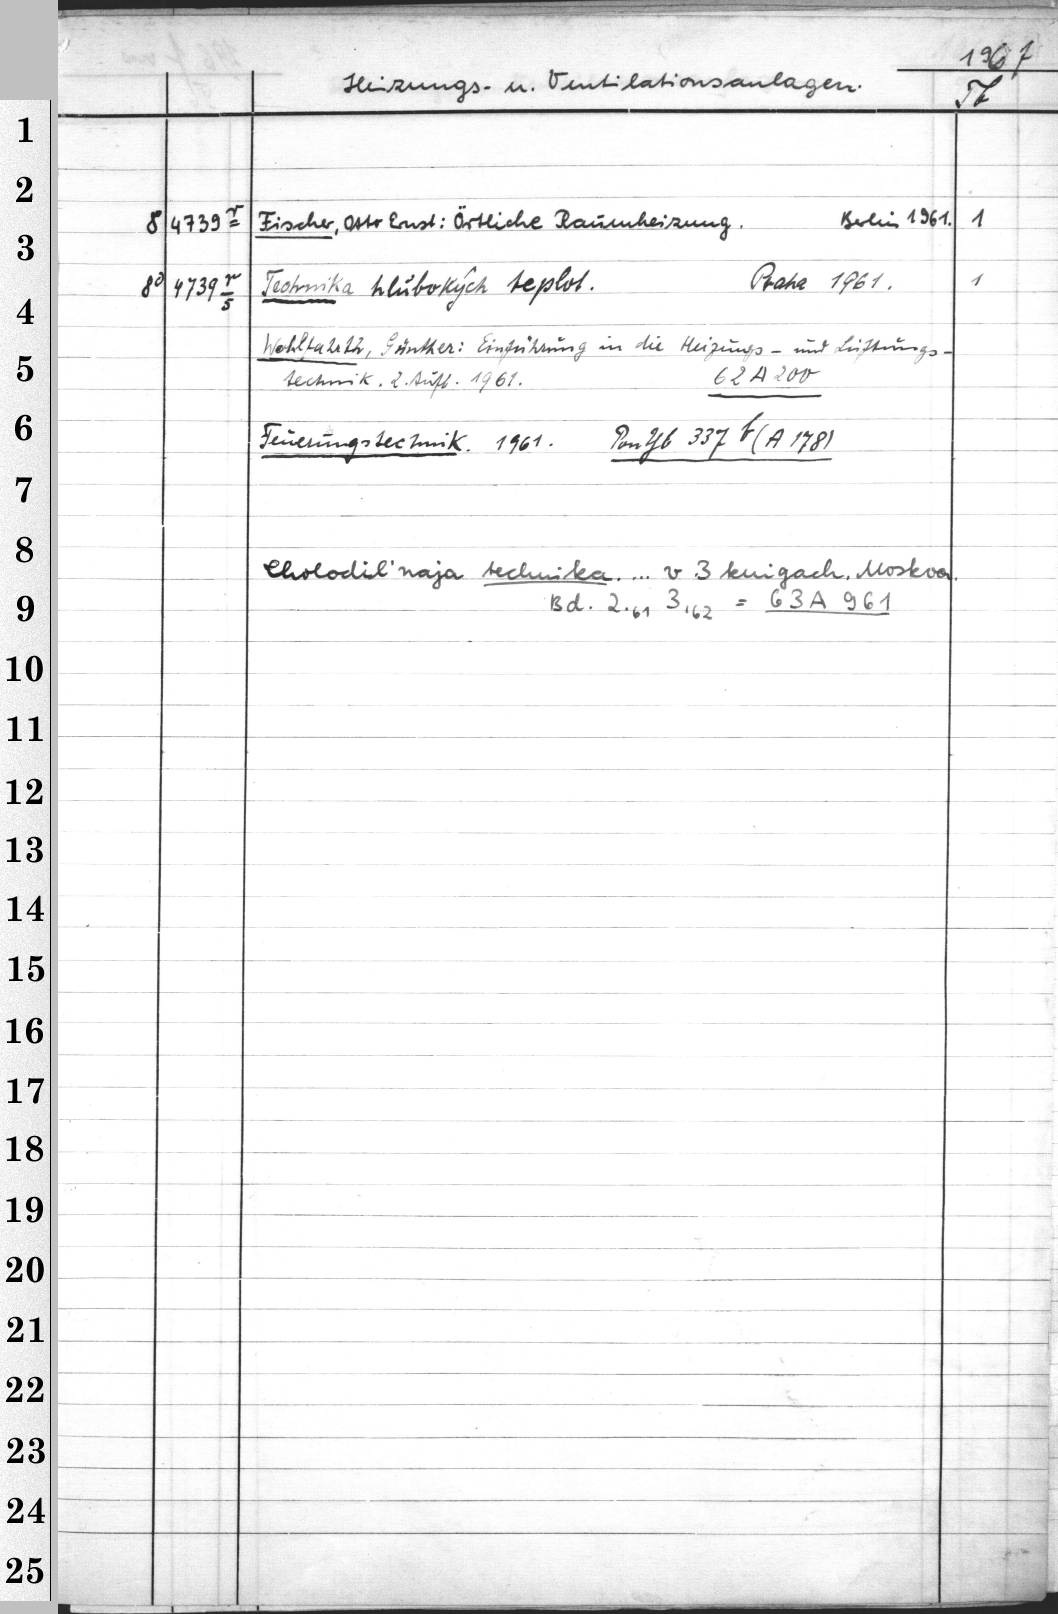 196
Heizungs- u. Ventilationsanlagen.
1
2
8 4739 r Fischer, Otto Ernst: Örtliche Raumheizung. Berlin 1961. 1
3
8° 4739 r/5 Technika hlubokých teplot. Praha 1961. 1
4
Wohlfahrth, Günther: Einführung in die Heizungs- und Lüftungs-
5
technik. 2. Aufl. 1961. 62 A 200
6
Feuerungstechnik. 1961. 337 b (A 178)
7
8
Cholodil'naja technika. ... v 3 knigach. Moskva.
9
Bd. 2.61 3.62 = 63 A 961
10
11
12
13
14
15
16
17
18
19
20
21
22
23
24
25